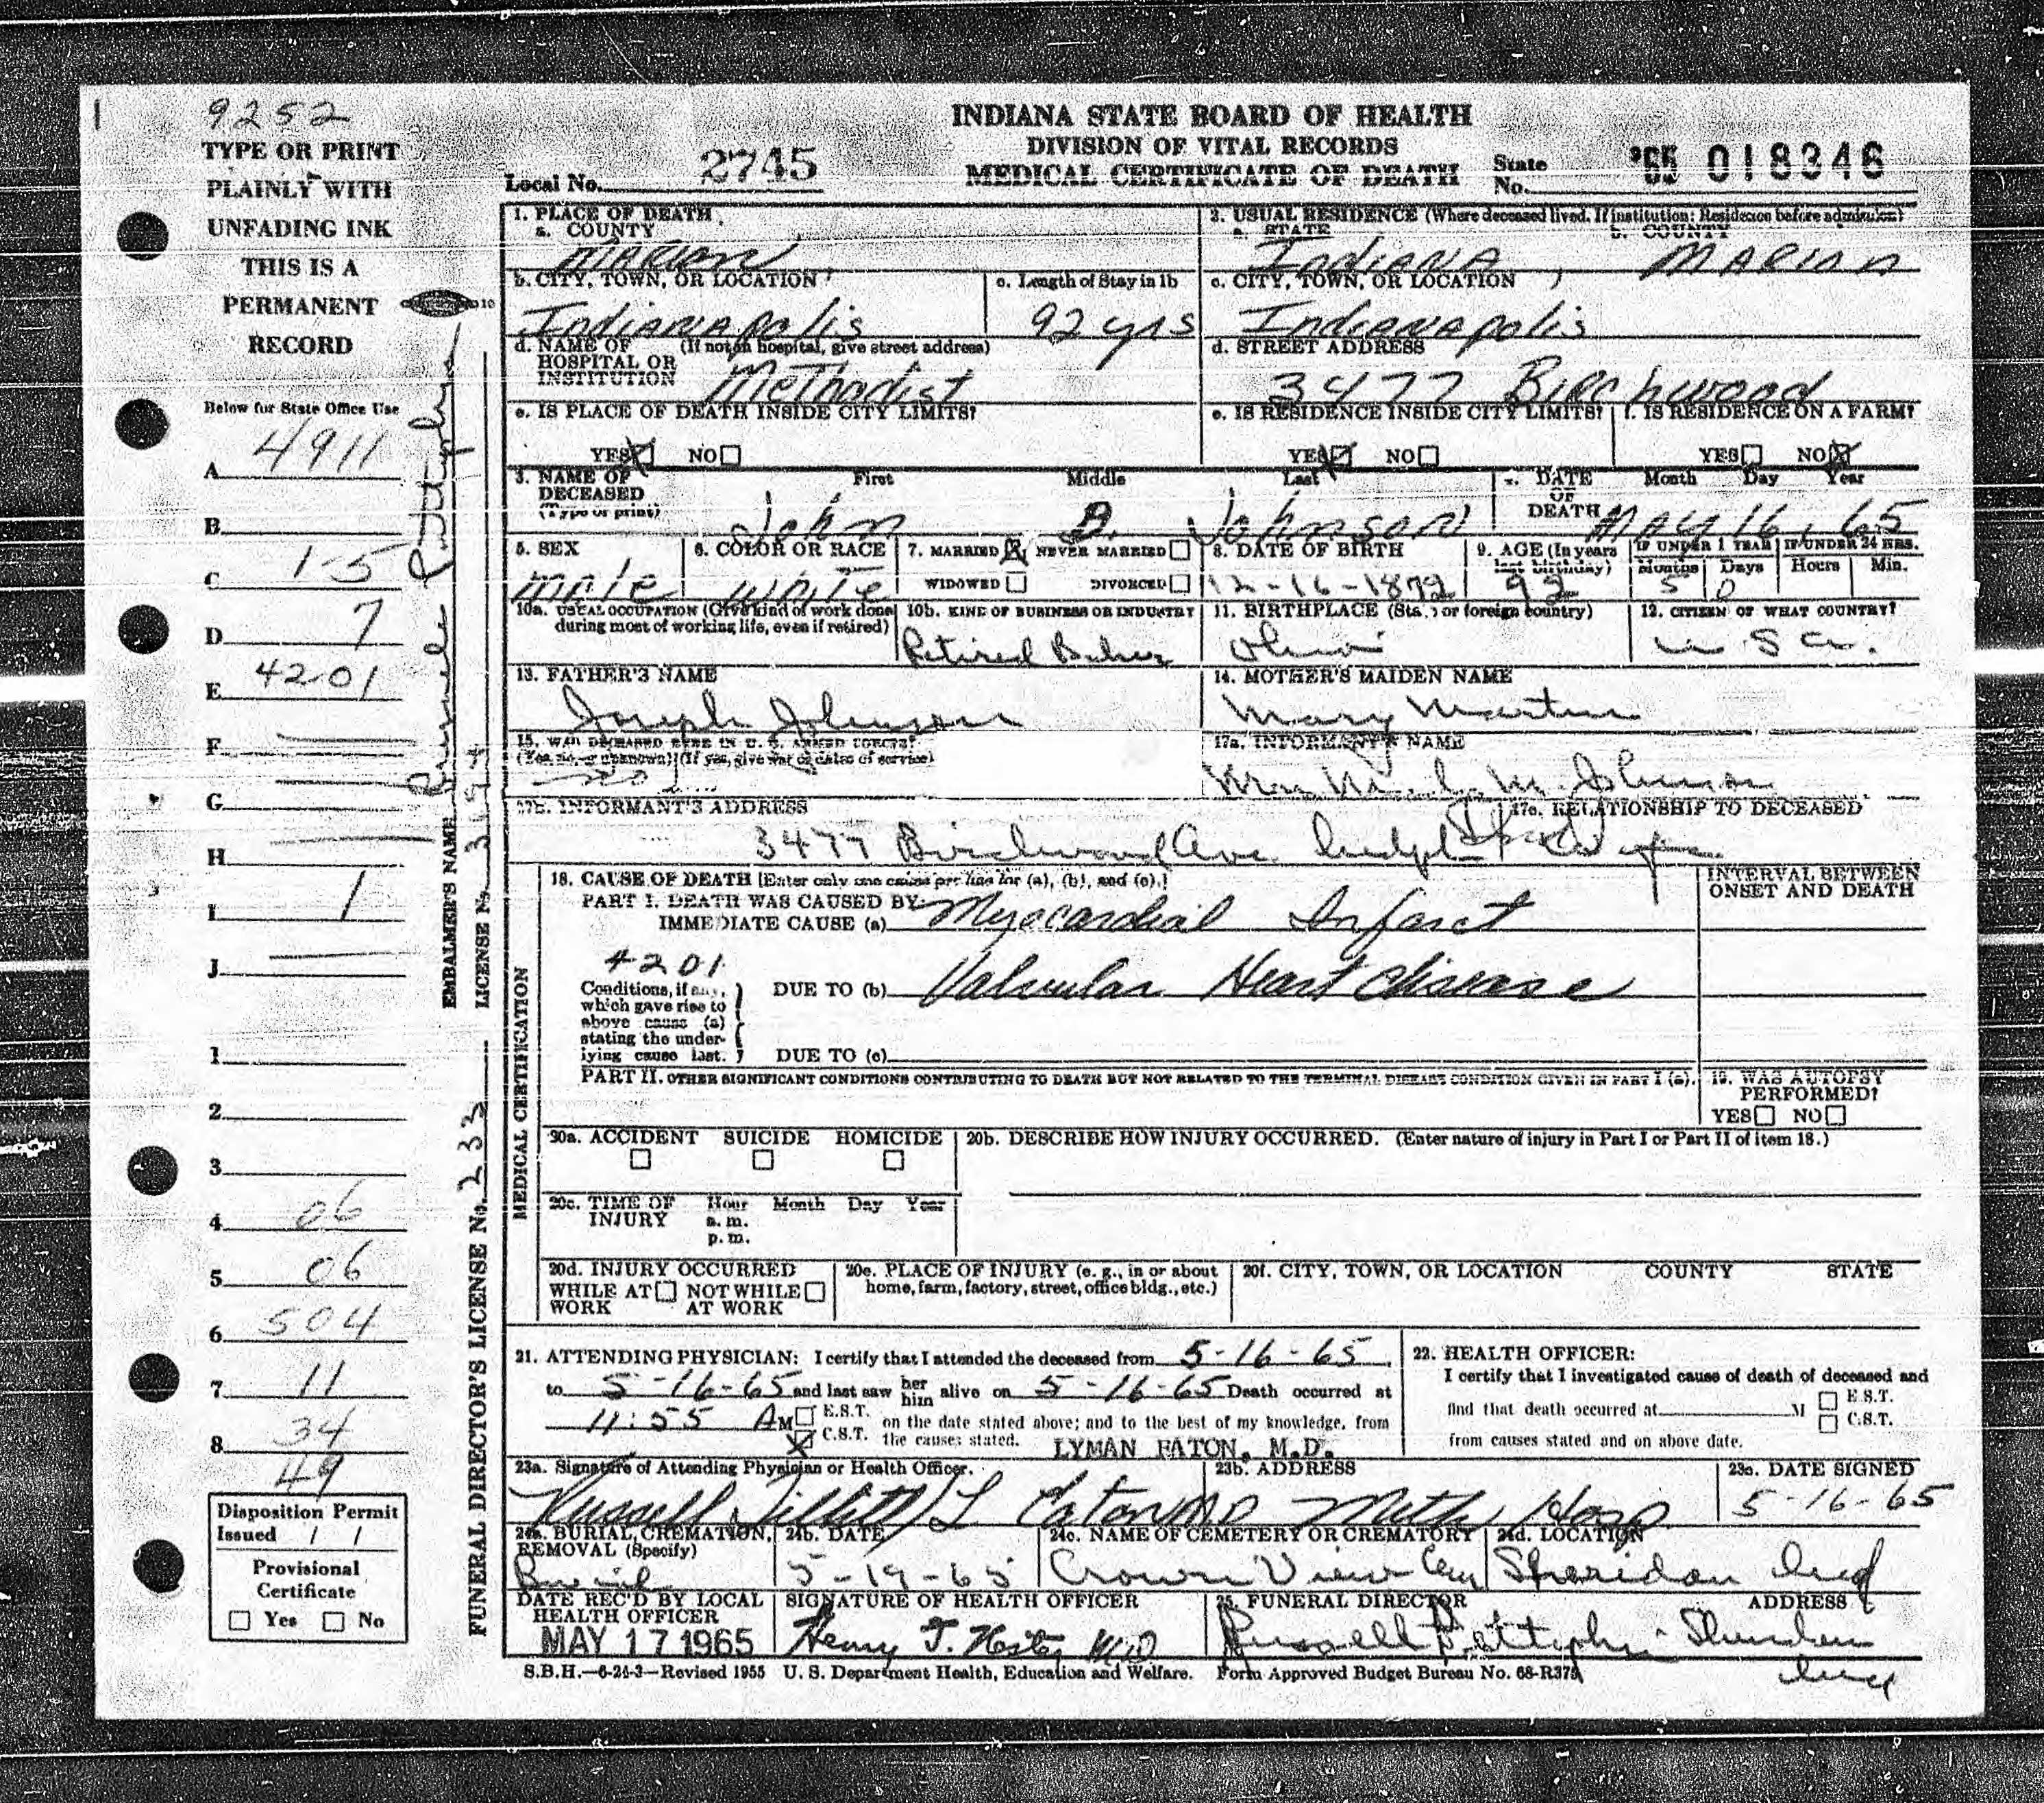 1 9252
INDIANA STATE BOARD OF HEALTH
DIVISION OF VITAL RECORDS
MEDICAL CERTIFICATE OF DEATH
Local No. 2745
State No. '65 018346
TYPE OR PRINT
PLAINLY WITH
UNFADING INK
THIS IS A
PERMANENT
RECORD
Below for State Office Use
A 4911
B
C 1-5
D 7
E 4201
F
G
H
I 1
J
1
2
3
4 06
5 06
6 504
7 11
8 34
49
Disposition Permit
Issued / /
Provisional
Certificate
Yes No
EMBALMER'S NAME
LICENSE No. 3194
FUNERAL DIRECTOR'S LICENSE No. 233
1. PLACE OF DEATH
a. COUNTY
Marion
2. USUAL RESIDENCE (Where deceased lived. If institution: Residence before admission)
a. STATE b. COUNTY
Indiana, Marion
b. CITY, TOWN, OR LOCATION
Indianapolis
c. Length of Stay in 1b
92 yrs
c. CITY, TOWN, OR LOCATION
Indianapolis
d. NAME OF (If not in hospital, give street address)
HOSPITAL OR
INSTITUTION Methodist
d. STREET ADDRESS
3477 Birchwood
e. IS PLACE OF DEATH INSIDE CITY LIMITS?
YES X NO
e. IS RESIDENCE INSIDE CITY LIMITS?
YES X NO
f. IS RESIDENCE ON A FARM?
YES NO X
3. NAME OF First Middle Last
DECEASED
(Type or print) John B. Johnson
4. DATE Month Day Year
OF
DEATH May 16, 65
5. SEX
Male
6. COLOR OR RACE
White
7. MARRIED X NEVER MARRIED
WIDOWED DIVORCED
8. DATE OF BIRTH
12-16-1872
9. AGE (In years
last birthday)
92
IF UNDER 1 YEAR IF UNDER 24 HRS.
Months Days Hours Min.
5 0
10a. USUAL OCCUPATION (Give kind of work done
during most of working life, even if retired)
10b. KIND OF BUSINESS OR INDUSTRY
Retired
11. BIRTHPLACE (State or foreign country)
12. CITIZEN OF WHAT COUNTRY?
U S a.
13. FATHER'S NAME
Joseph Johnson
14. MOTHER'S MAIDEN NAME
Mary Martin
15. WAS DECEASED EVER IN U. S. ARMED FORCES?
(Yes, no, or unknown) (If yes, give war or dates of service)
no
17a. INFORMANT'S NAME
M. Johnson
17b. INFORMANT'S ADDRESS
3477 Birchwood Ave
17c. RELATIONSHIP TO DECEASED
MEDICAL CERTIFICATION
18. CAUSE OF DEATH [Enter only one cause per line for (a), (b), and (c).]
PART I. DEATH WAS CAUSED BY:
IMMEDIATE CAUSE (a) Myocardial Infarct
INTERVAL BETWEEN
ONSET AND DEATH
4201
Conditions, if any,
which gave rise to
above cause (a)
stating the under-
lying cause last.
DUE TO (b) Valvular Heart disease
DUE TO (c)
PART II. OTHER SIGNIFICANT CONDITIONS CONTRIBUTING TO DEATH BUT NOT RELATED TO THE TERMINAL DISEASE CONDITION GIVEN IN PART I (a).
19. WAS AUTOPSY
PERFORMED?
YES NO
20a. ACCIDENT SUICIDE HOMICIDE
20b. DESCRIBE HOW INJURY OCCURRED. (Enter nature of injury in Part I or Part II of item 18.)
20c. TIME OF Hour Month Day Year
INJURY a. m.
p. m.
20d. INJURY OCCURRED
WHILE AT NOT WHILE
WORK AT WORK
20e. PLACE OF INJURY (e. g., in or about
home, farm, factory, street, office bldg., etc.)
20f. CITY, TOWN, OR LOCATION COUNTY STATE
21. ATTENDING PHYSICIAN: I certify that I attended the deceased from 5-16-65,
to 5-16-65 and last saw her him alive on 5-16-65 Death occurred at
11:55 AM E.S.T. on the date stated above; and to the best of my knowledge, from
X C.S.T. the causes stated. LYMAN EATON, M.D.
22. HEALTH OFFICER:
I certify that I investigated cause of death of deceased and
find that death occurred at M E.S.T.
C.S.T.
from causes stated and on above date.
23a. Signature of Attending Physician or Health Officer.
Russell Tillett/L Eaton MD
23b. ADDRESS
Meth Hosp
23c. DATE SIGNED
5-16-65
24a. BURIAL, CREMATION,
REMOVAL (Specify)
Burial
24b. DATE
5-19-65
24c. NAME OF CEMETERY OR CREMATORY
Crown View Cem
24d. LOCATION
Sheridan Ind
DATE REC'D BY LOCAL
HEALTH OFFICER
MAY 17 1965
SIGNATURE OF HEALTH OFFICER
Henry M.D.
25. FUNERAL DIRECTOR ADDRESS
Russell Sheridan
Ind
S.B.H.—6-24-3—Revised 1955 U. S. Department Health, Education and Welfare. Form Approved Budget Bureau No. 68-R375